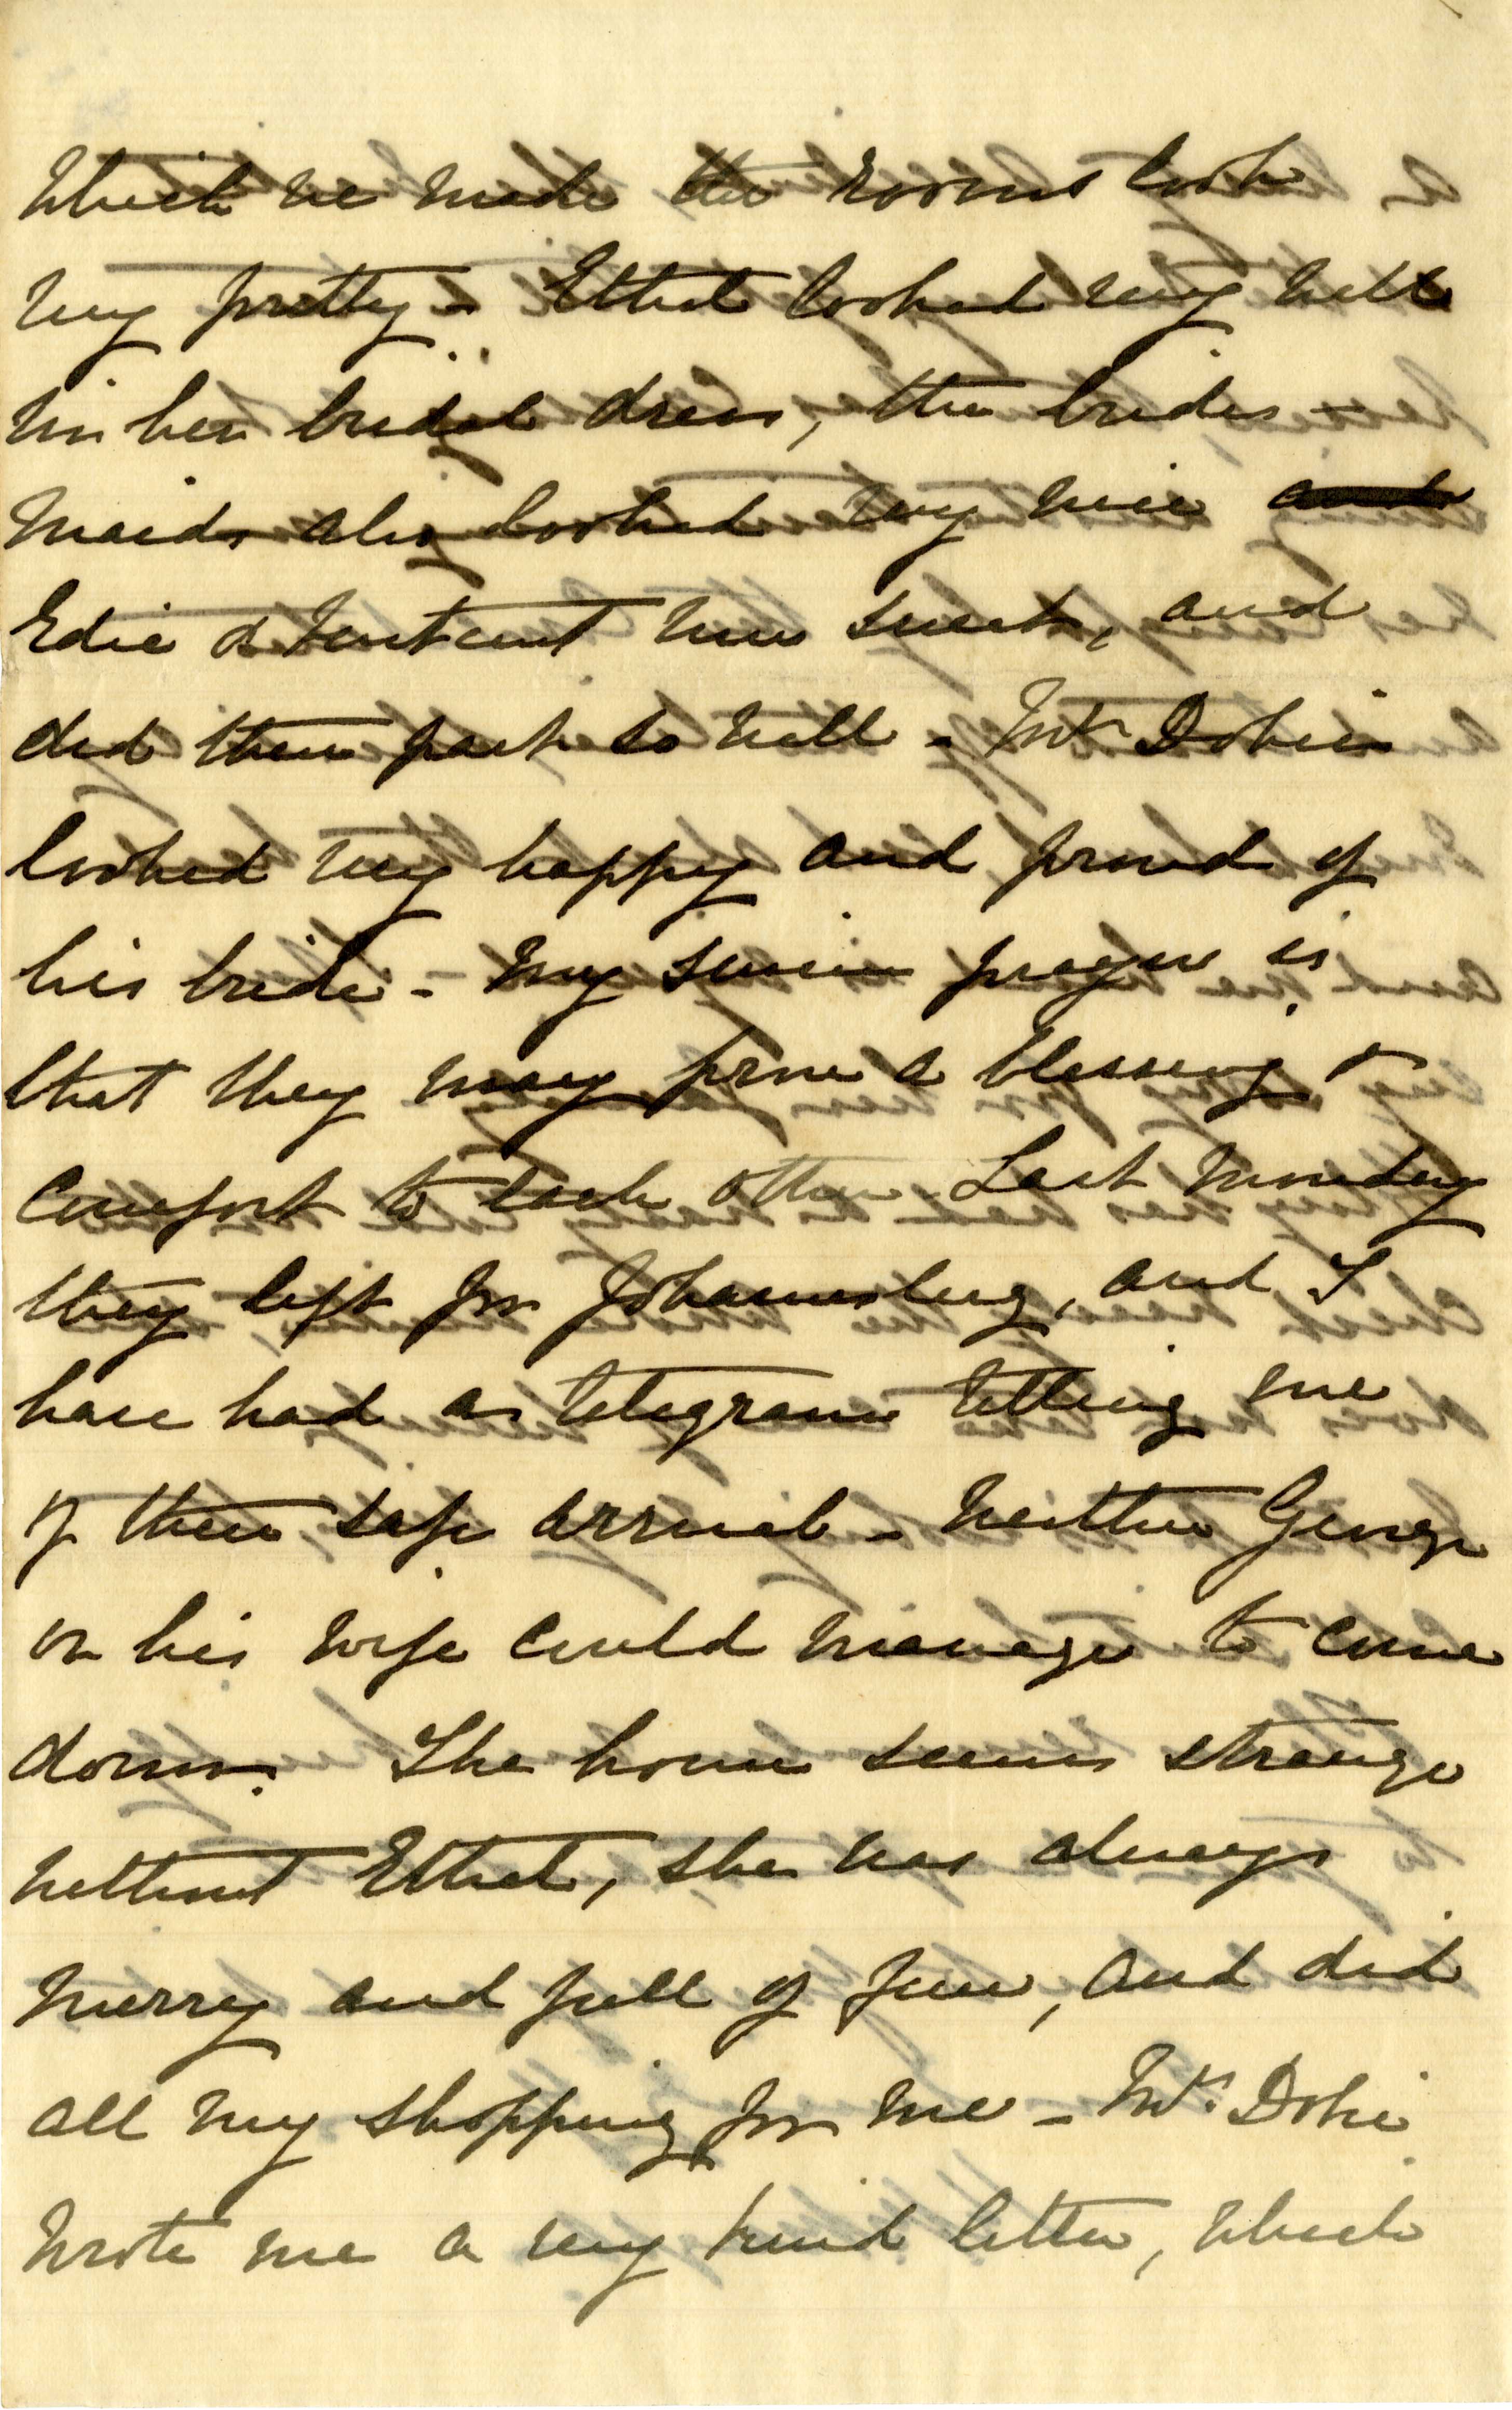 which we made the rooms look
very pretty - Ethel looked very well
in her bridal dress, the brides-
maids also looked very nice
Edie & were sweet, and
did their part so well - Mr Dobie
looked very happy and proud of
his bride - my sincere prayer is
that they may prove a blessing &
comfort to each other. Last Monday
they left for Johannesburg, and I
have had a telegram telling me
of their safe arrival - neither George
or his wife could manage to come
down. The house seems strange
without Ethel, she was always
merry and full of fun, and did
all my shopping for me - Mrs Dobie
wrote me a very kind letter, which